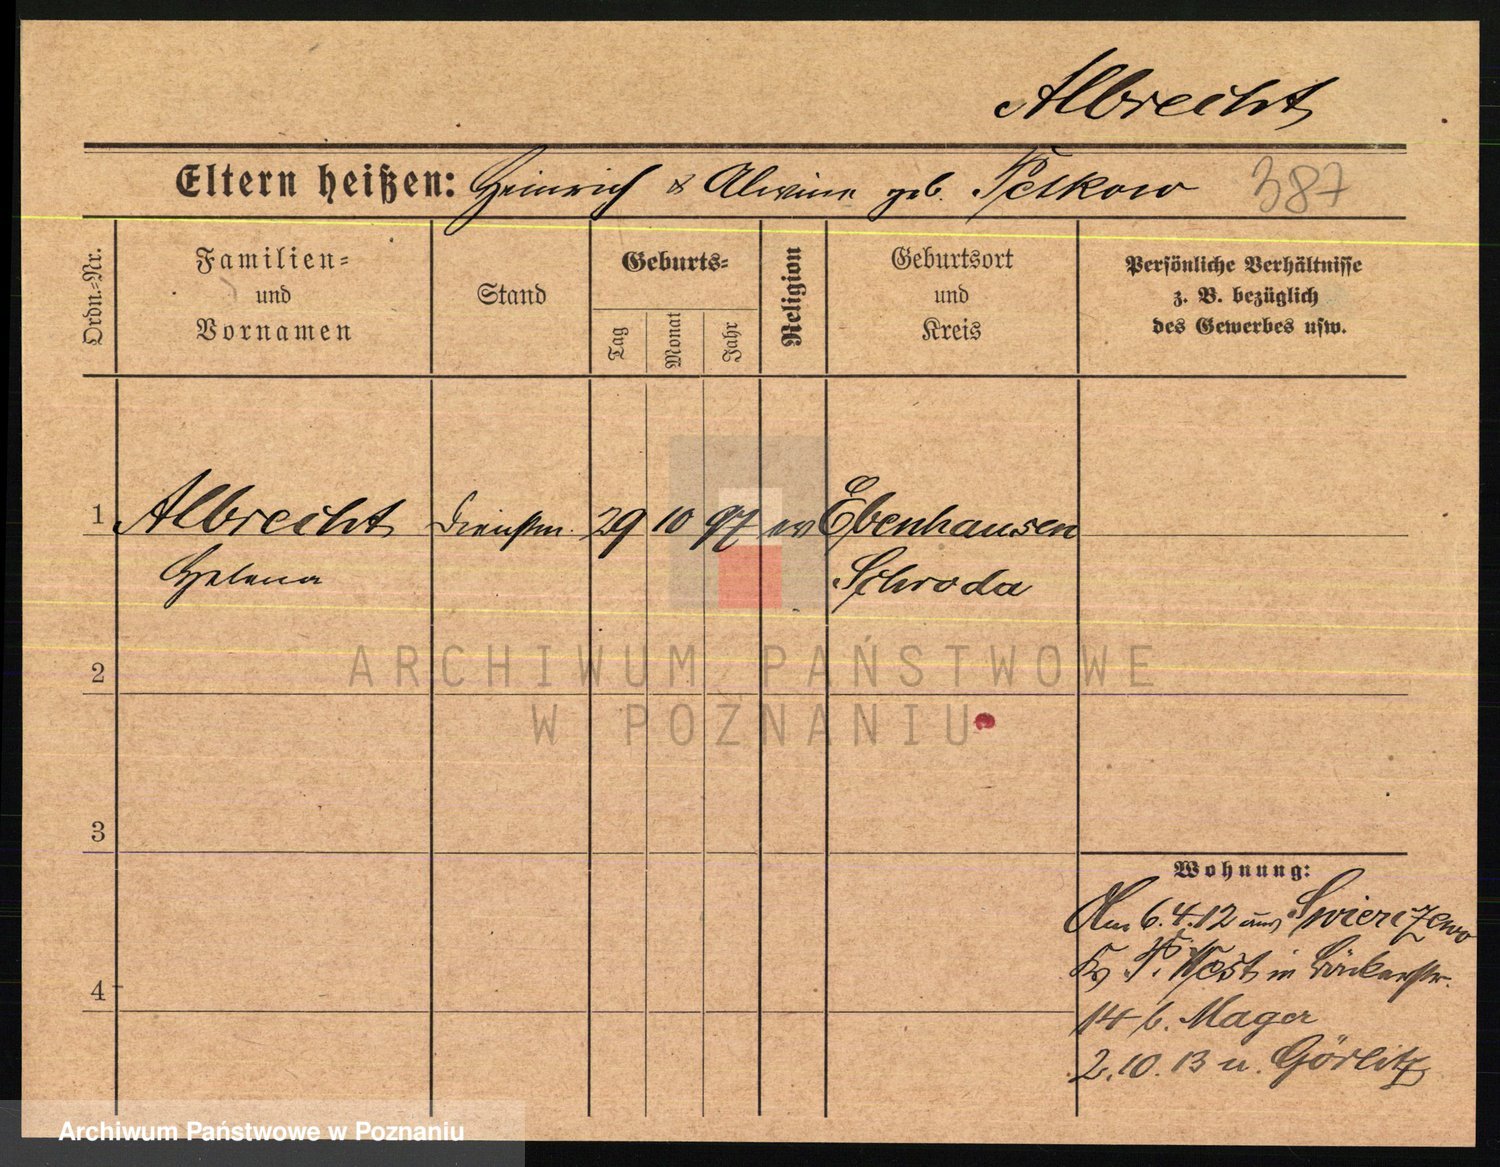 Albrecht
Eltern heißen: Heinrich & Alwine geb. Petkow 387
Ordn.-Nr.
Familien-
und
Vornamen
Stand
Geburts-
Tag
Monat
Jahr
Religion
Geburtsort
und
Kreis
Persönliche Verhältnisse
z. B. bezüglich
des Gewerbes usw.
1 Albrecht Dienstm. 29 10 97 ev Ebenhausen
Helena Schroda
ARCHIWUM PAŃSTWOWE
W POZNANIU
2
3
4
Wohnung:
Am 6.4.12 aus Swierczewo
Kr P. West in Bäckerstr.
14 b. Mager
2.10.13 n. Görlitz
Archiwum Państwowe w Poznaniu